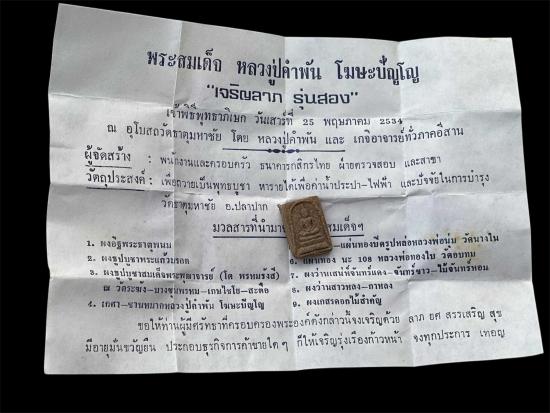 พระสมเด็จ หลวงปู่คำพัน โฆษะปัญโญ
"เจริญลาภ รุ่นสอง"
เข้าพิธีพุทธาภิเษก วันเสาร์ที่ 25 พฤษภาคม 2534
ณ อุโบสถวัดธาตุมหาชัย โดย หลวงปู่คำพัน และ เกจิอาจารย์ทั่วภาคอีสาน
ผู้จัดสร้าง : พนักงานและครอบครัว ธนาคารกสิกรไทย ฝ่ายตรวจสอบ และสาขา
วัตถุประสงค์ : เพื่อถวายเป็นพุทธบูชา หารายได้เพื่อค่าน้ำประปา-ไฟฟ้า และปัจจัยในการบำรุง
วัดธาตุมหาชัย อ.ปลาปาก
มวลสารที่นำมา สมเด็จฯ
1. ผงอิฐพระธาตุพนม
2. ผงธูปบูชาพระแก้วมรกต
3. ผงธูปบูชาสมเด็จพระพุฒาจารย์ (โต พรหมรังสี)
ณ วัดระฆัง-บางขุนพรหม-เกษไชโย-สะดือ
4. เกศา-ชานหมากหลวงปู่คำพัน โฆษะปัญโญ
-แผ่นทองบีดรูปหล่อหลวงพ่อนม วัดนางใน
6. แผ่นทอง นะ 108 หลวงพ่อทองใบ วัดอบทม
7. ผงว่านเสน่ห์จันทน์แดง-จันทร์ขาว-ไม้จันทร์หอม
8. ผงว่านสาวหลง-กาหลง
9. ผงเกสรดอกไม้สำคัญ
ขอให้ท่านผู้มีศรัทธาที่ครอบครองพระองค์ดังกล่าวนี้จงเจริญด้วย ลาภ ยศ สรรเสริญ สุข
มีอายุมั่นขวัญยืน ประกอบธุรกิจการค้าขายใด ๆ ก็ให้เจริญรุ่งเรืองก้าวหน้า จงทุกประการ เทอญ